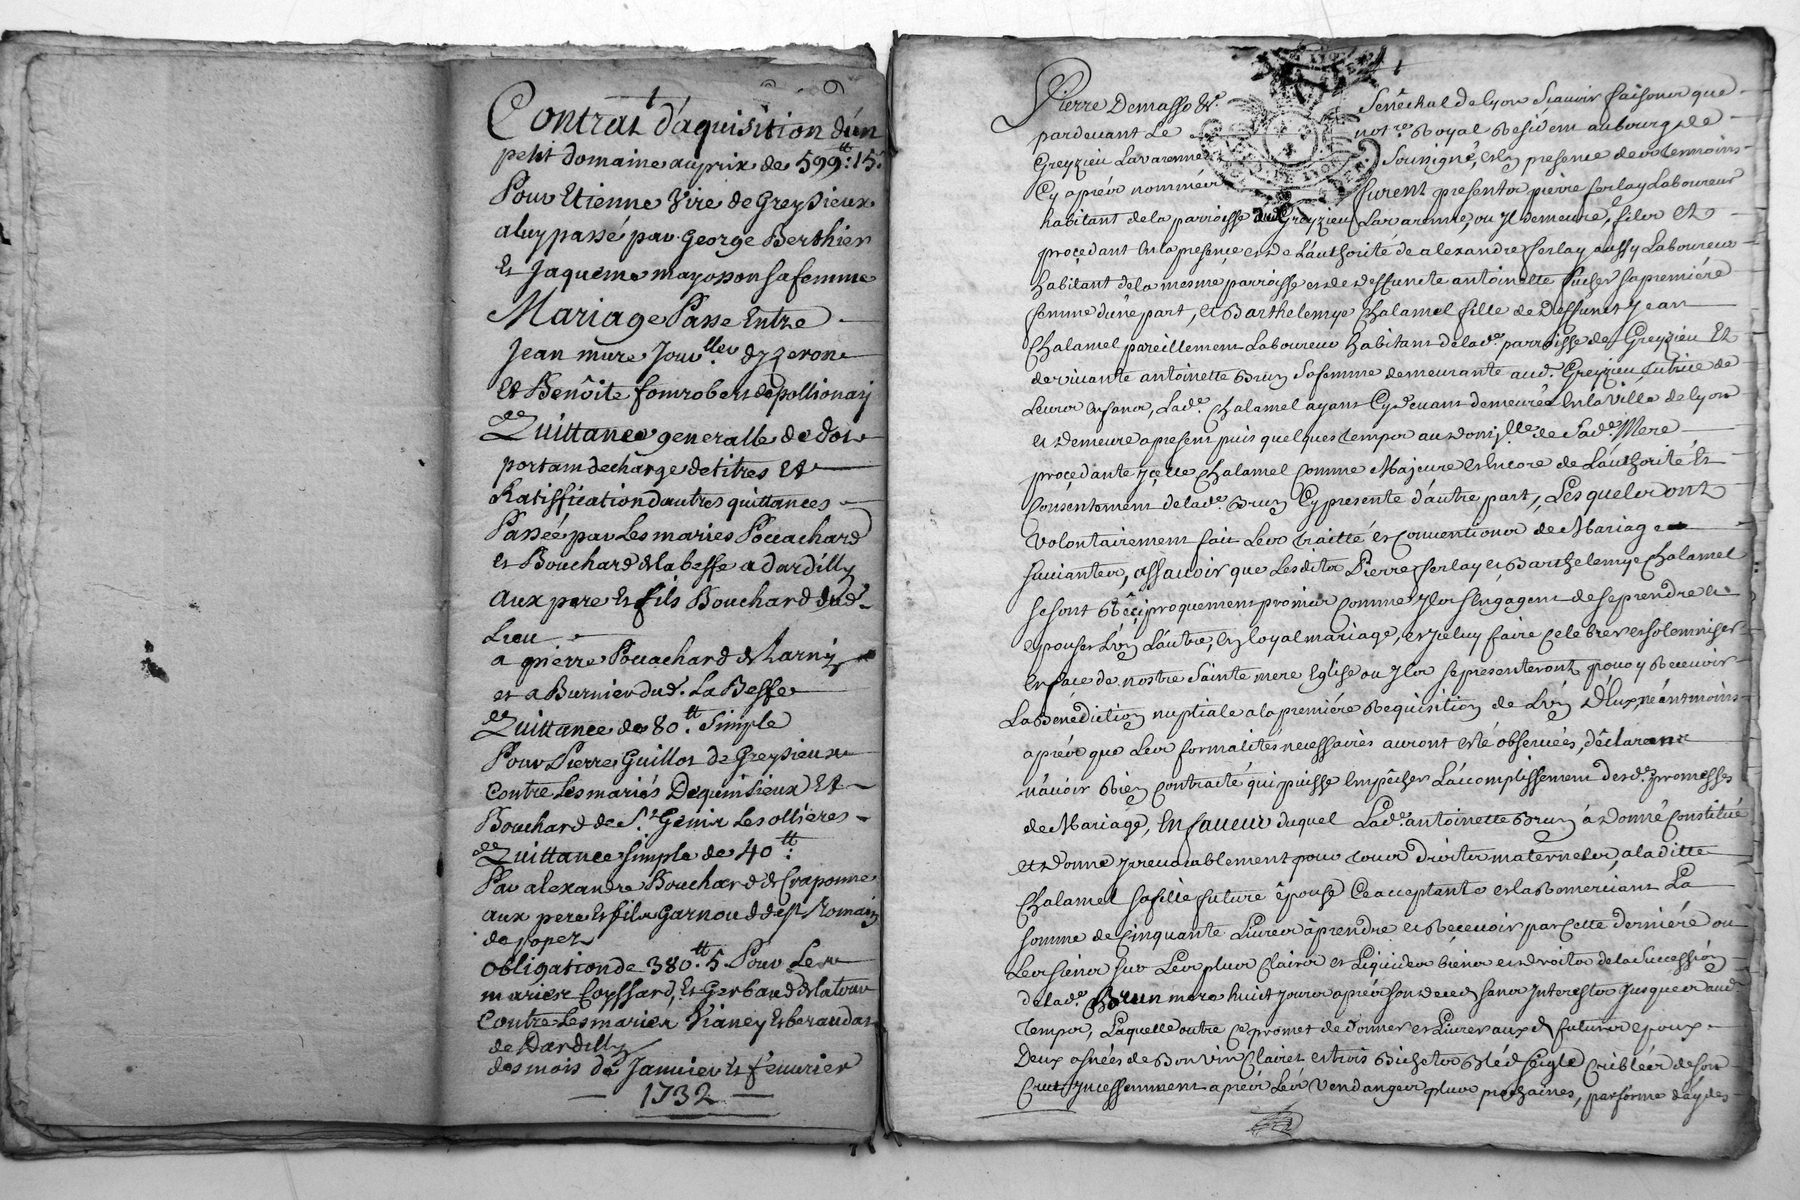 Contrat d'aquisition d'un
petit domaine au prix de 599tt: 15s
Pour Etienne Vire de Greysieux
a luy passé par George Berthier
Et Jaqueme mayosson sa femme
Mariage Passe Entre
Jean mure Jour.lier d'yzeron
et Benoite fomrobert de pollionay
Quittance generalle de dot
portam decharge de titres Et
Ratiffication dautres quittances
Passée par Les maries Pouachard
et Bouchard de la beffe a dardilly
aux pere Et fils Bouchard dud.
Lieu
a pierre Pouachard de Larny
et a Burnier dud. La Beffe
Quittance de 80.tt Simple
Pour Pierre Guillot de Greysieux
Contre Les mariés Dequinsieux Et
Bouchard de St. Genix Les ollières
Quittance simple de 40tt:
Par alexandre Bouchard de Craponne
aux pere Et fils Garnoud de St Romain
de popez
obligation de 380.tt 5 Pour Les
maries Coyssard, Et Gerbaud de la tour
Contre Les maries Vianey Et beraudat
de Dardilly
des mois de Januier Et feurier
1732
Pierre Demasso &c. Senéchal de Lyon Scauoir faisons que
pardeuant Le not.re Royal Resident au bourg de
Greyzieu Lauarenne Soussigné, et en presence des temoins
Cy aprés nommés furent presents pierre ferlay Laboureur
habitant de la parroisse de Greyzieu Lauarenne, ou Il demeure, fils Et
procedant En la presence et de L'authorité de alexandre ferlay aussy Laboureur
habitant de la mesme parroisse et de deffuncte antoinette sucher sa premiére
femme d'une part, et Barthelemye Chalamel fille de deffunct Jean
Chalamel pareillement Laboureur habitant de lad.e parroisse de Greyzieu Et
de viuante antoinette Brun sa femme demeurante aud. Greyzieu, tutrice de
Leurs enfans, Lad.e Chalamel ayant Cy deuant demeurée En la Ville de Lyon
et demeure apresent puis quelques temps au domi.lle de sad.e Mere
procedante ycelle Chalamel Comme Majeure et Encore de L'authorité Et
Consentement de lad.e Brun Cy presente d'autre part, Lesquels ont
Volontairement fait Les traitté et Conuentions de Mariage
suiuantes, assauoir que Lesdits Pierre ferlay et Barthelemye Chalamel
se sont Réciproquement promis Comme Ils s'Engagent de se prendre et
epouser L'un L'autre, En loyal mariage, et Iceluy faire Celebrer et solemniser
En face de nostre Sainte mere Eglise ou Ils se presenteront pour y Receuoir
La Bénédiction nuptiale a la premiére Requisition de L'un D'Eux néantmoins
aprés que Les formalités necessaires auront esté obseruées, déclarant
n'auoir Rien Contracté qui puisse Empêcher L'accomplissement desd.es promesses
de Mariage, En faueur duquel Lad.e antoinette Brun á donné Constitué
et donne Irreuocablement pour tous droits maternels, a laditte
Chalamel sa fille future épouse Ce acceptante et la Remerciant La
somme de Cinquante Liures à prendre et Receuoir par Cette derniére ou
Les siens sur Les plus Clairs et Liquides biens et droits de la Succession
de lad.e Brun mere huict jours aprés son deced sans Interests Jusques aud.
Temps, Laquelle outre Ce promet de donner et Liurer auxd. futurs epoux
Deux asnées de Bon Vin Clairet et trois Bichets Bléd seigle Criblés de son
Crut Incessemment aprés Les Vendanges plus prochaines, par forme d'aydes